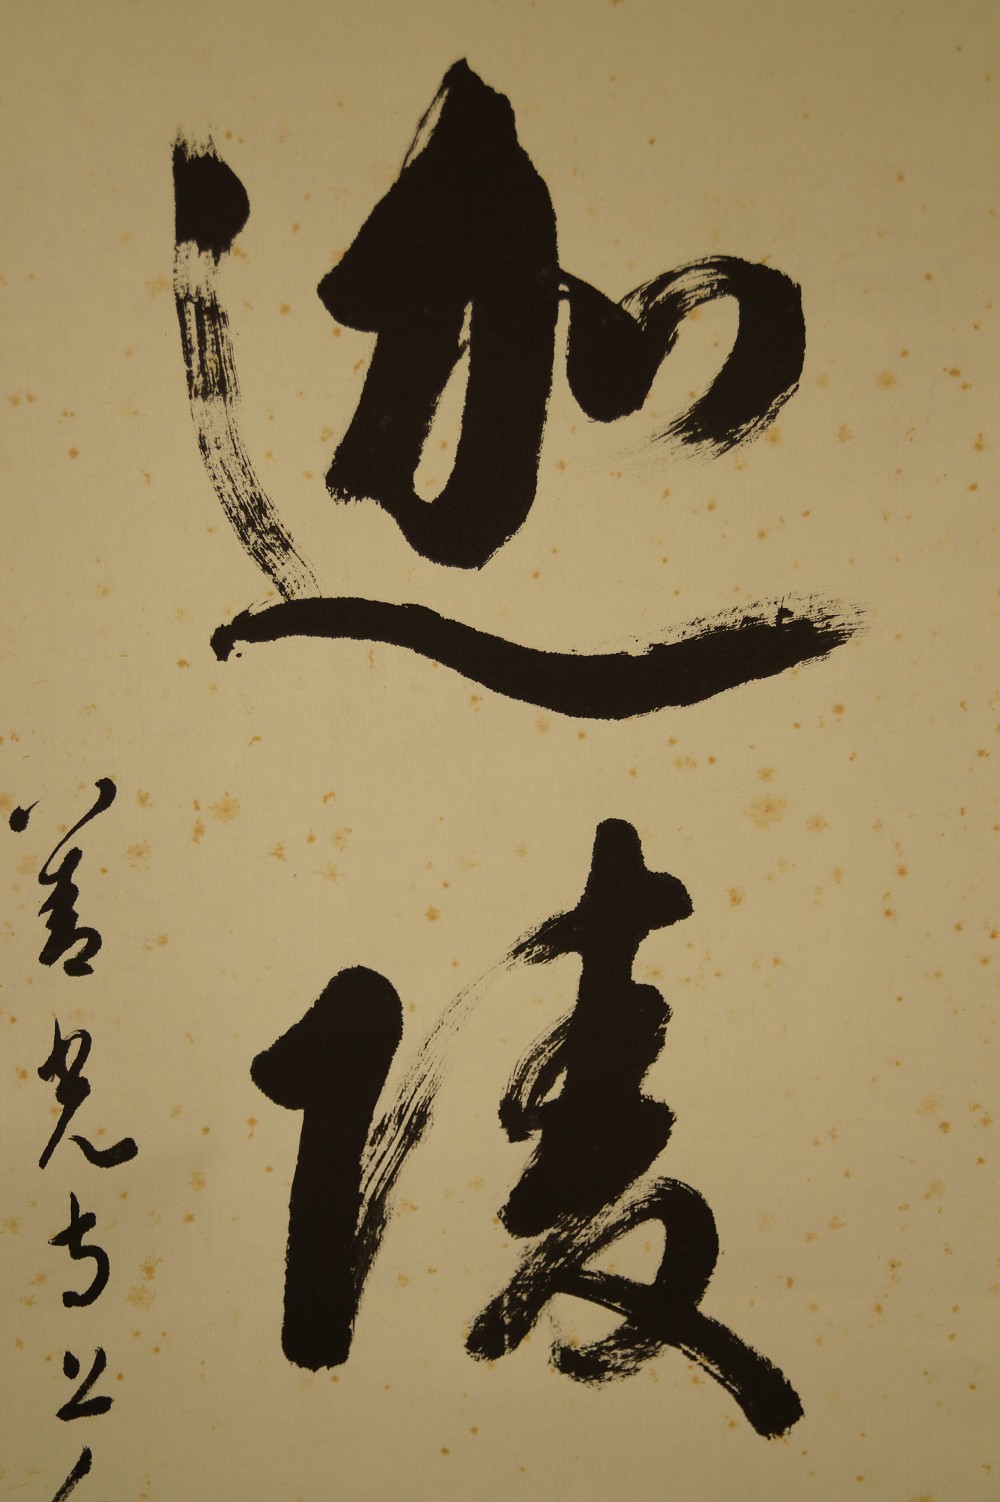 迦陵
善光寺上